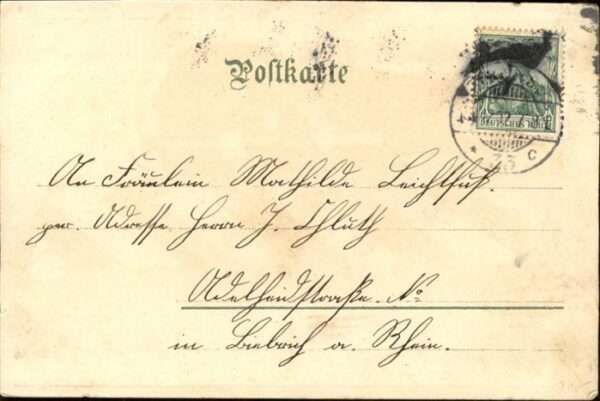 Postkarte
33 c
An Fräulein Mathilde Leichtfuß.
per. Adresse Herrn J. Chluth
Adelheidstraße. No
in Biebrich a. Rhein.